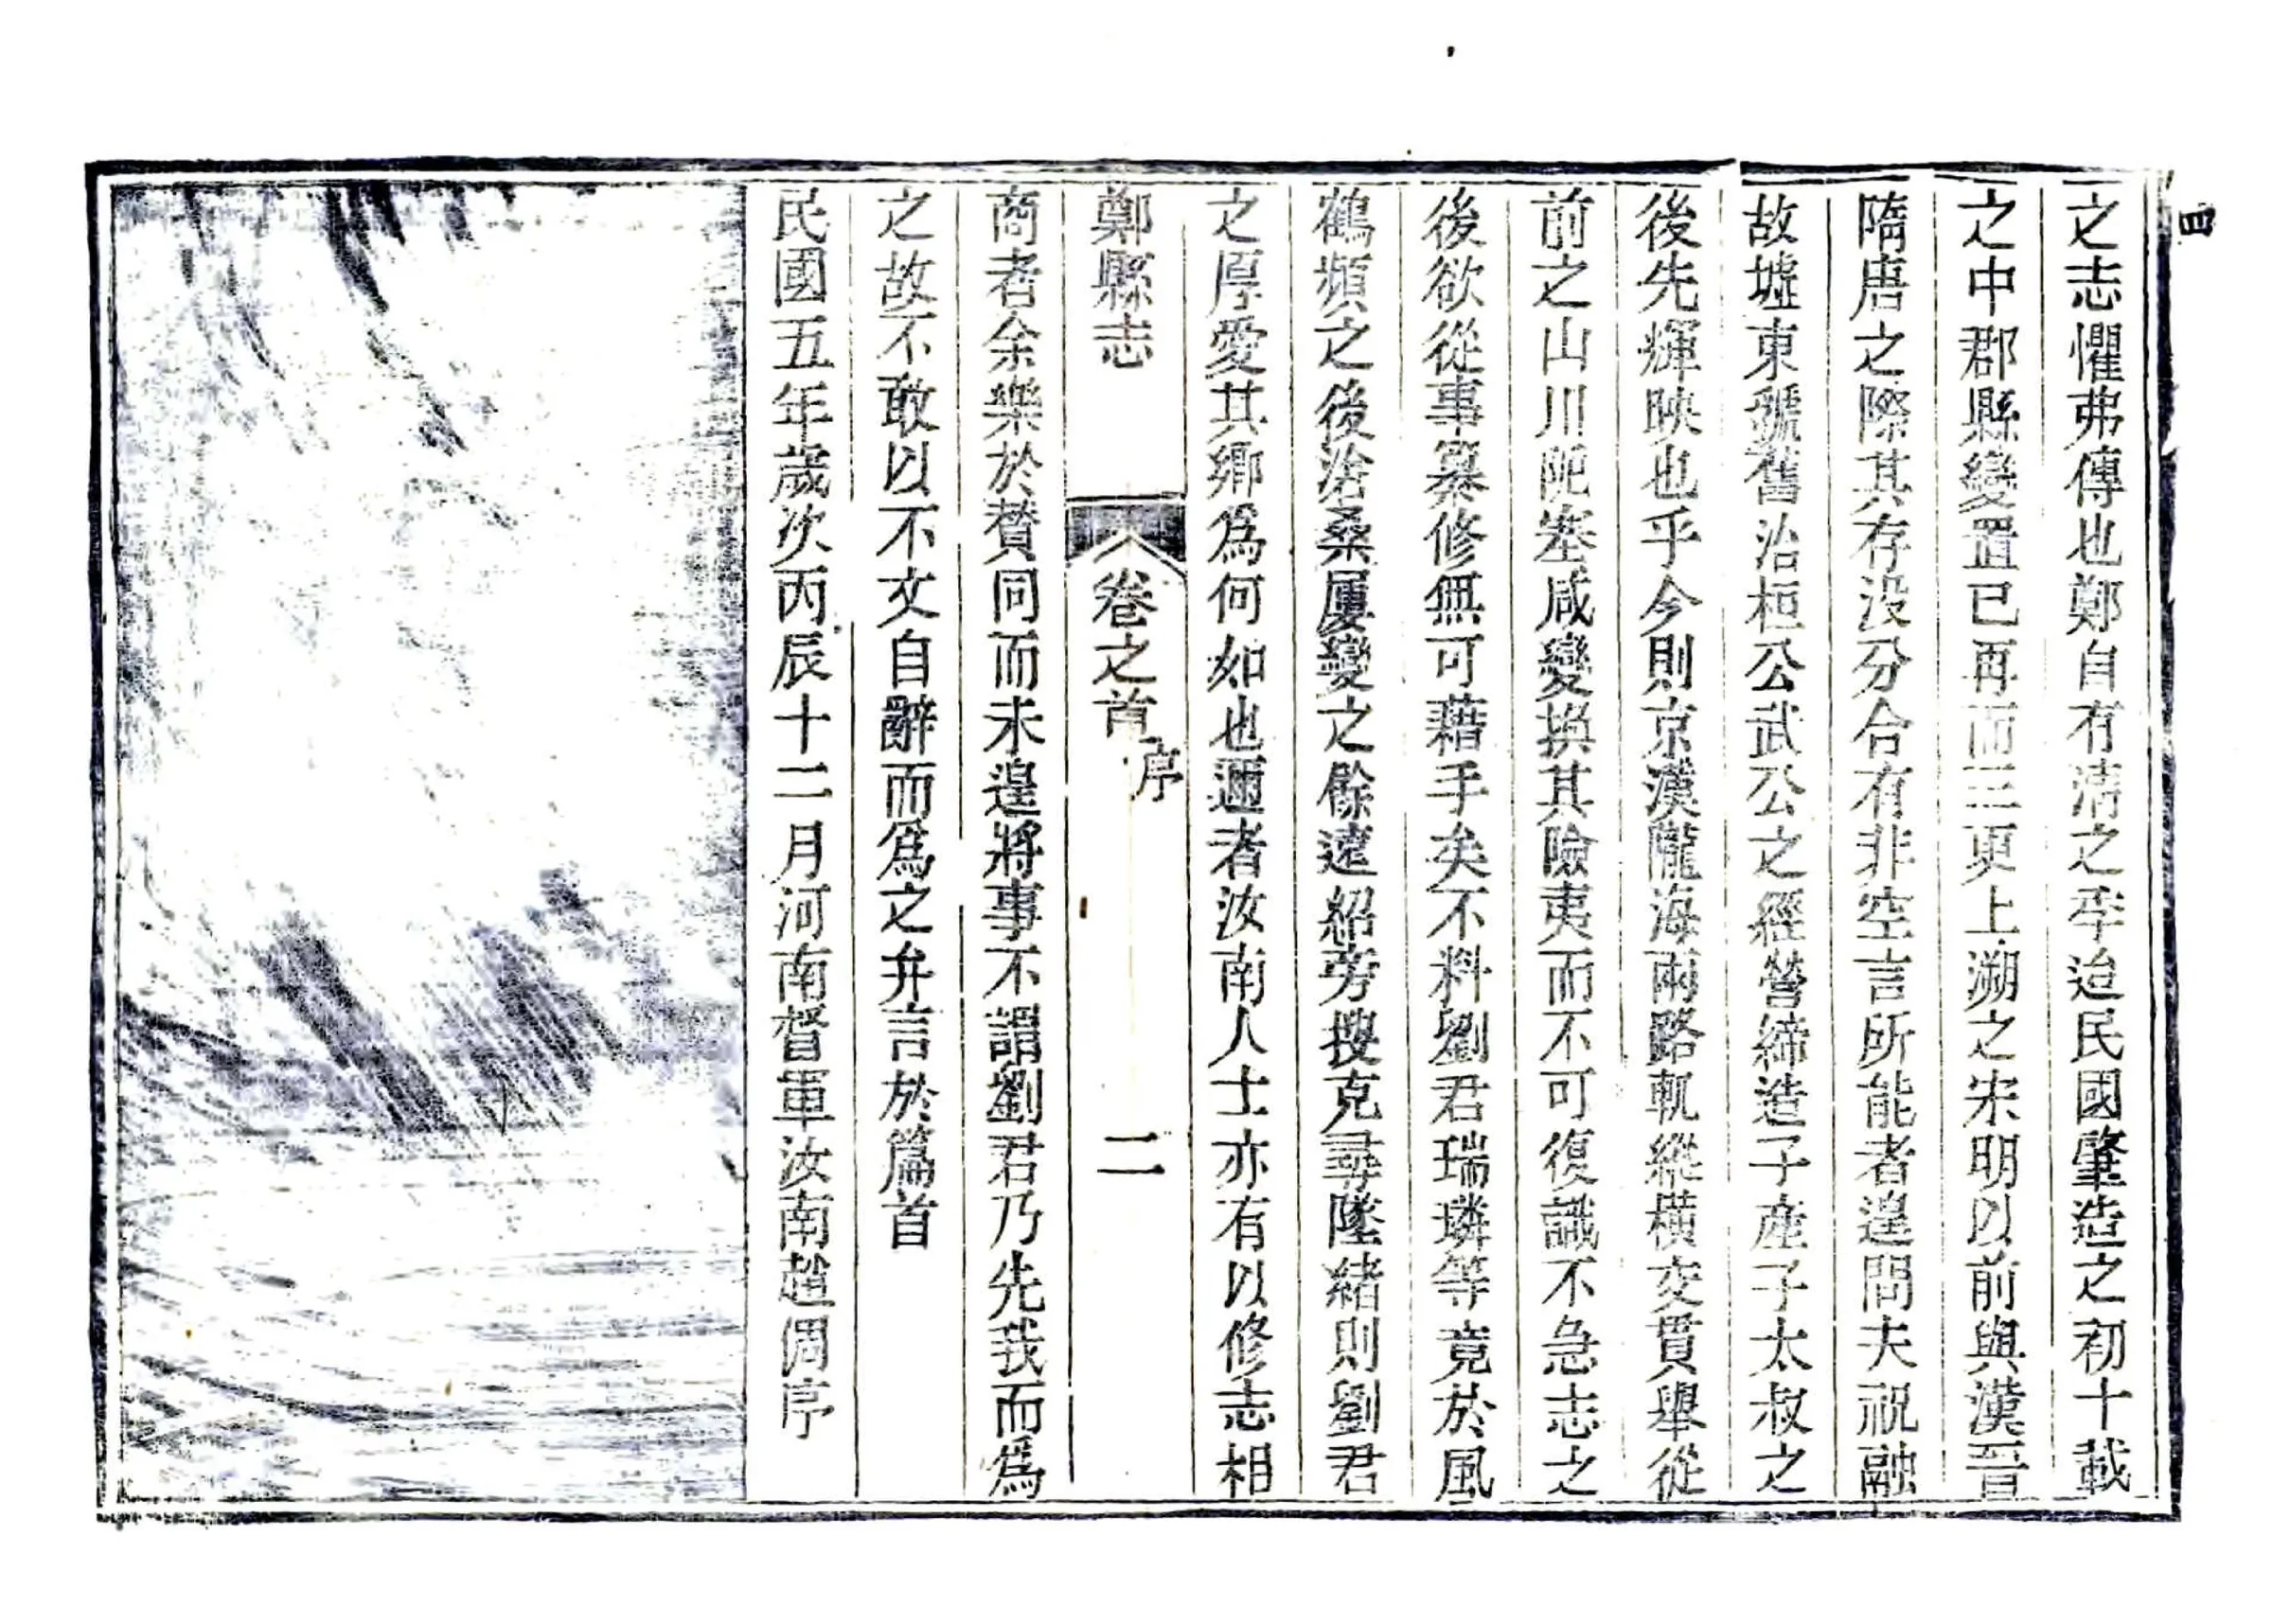 四
之志懼弗傳也鄭自有清之季迨民國肇造之初十載
之中郡縣變置已再而三更上溯之宋明以前與漢晉
隋唐之際其存没分合有非空言所能者遑問夫祝融
故墟東虢舊治桓公武公之經營締造子產子太叔之
後先輝映也乎今則京漢隴海兩路軌縱橫交貫舉從
前之山川阨塞咸變換其險夷而不可復識不急志之
後欲從事纂修無可藉手矣不料劉君瑞璘等竟於風
鶴頻之後滄桑屢變之餘遠紹旁搜克尋墜緒則劉君
之厚愛其鄉爲何如也邇者汝南人士亦有以修志相
鄭縣志 卷之首 序 二
商者余樂於贊同而未遑將事不謂劉君乃先我而爲
之故不敢以不文自辭而爲之弁言於篇首
民國五年歲次丙辰十二月河南督軍汝南趙倜序